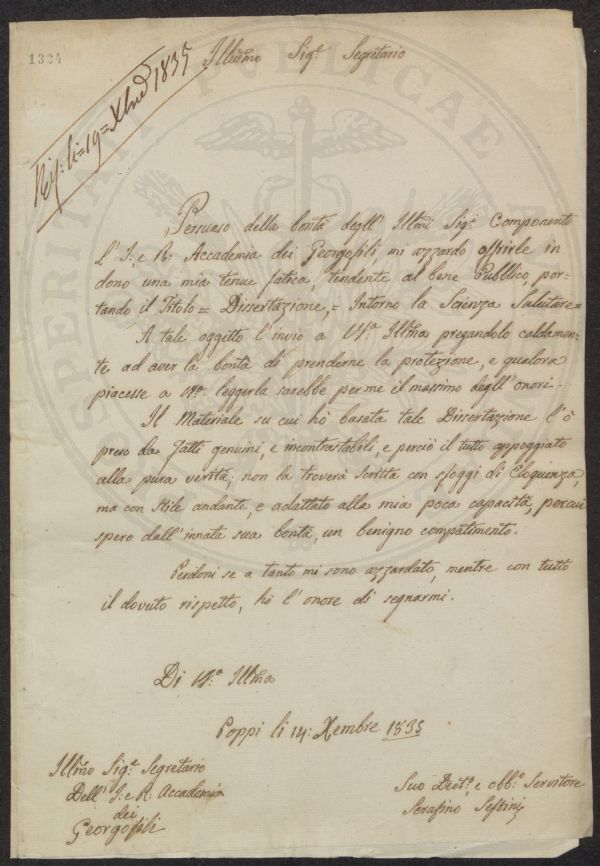 1324
Illmo Sigr. Segretario
Risp: li = 19 = Xbre 1835
Persuaso della bontà degll' Illmi Sigri Componenti
l' I: e R: Accademia dei Georgofili mi azzardo offrirle in
dono una mia tenue fatica, tendente al bene Pubblico, por-
tando il Titolo = Dissertazione, = Intorno la Scienza Salutare =
A tale oggetto l'invio a VSa. Illma pregandolo caldamen-
te ad aver la bontà di prenderne la protezione, e qualora
piacesse a VSa. leggerla sarebbe per me il massimo degll' onori.
Il Materiale su cui hò basata tale Dissertazione l'ò
preso da fatti genuini, e incontrastabili, e perciò il tutto appoggiato
alla pura verità; non la troverà Scritta con sfoggi di Eloquenza,
ma con Stile andante, e adattato alla mia poca capacità, percui
spero dall' innata sua bontà, un benigno compatimento.
Perdoni se a tanto mi sono azzardato, mentre con tutto
il dovuto rispetto, hò l' onore di segnarmi.
Di VSa. Illma
Poppi li 14: Xembre 1835
Illmo Sigre Segretario
Dell' I: e R: Accademia
dei
Georgofili
Suo Devto. e obbo. Servitore
Serafino Sestini
PROSPERITATI PVBLICAE